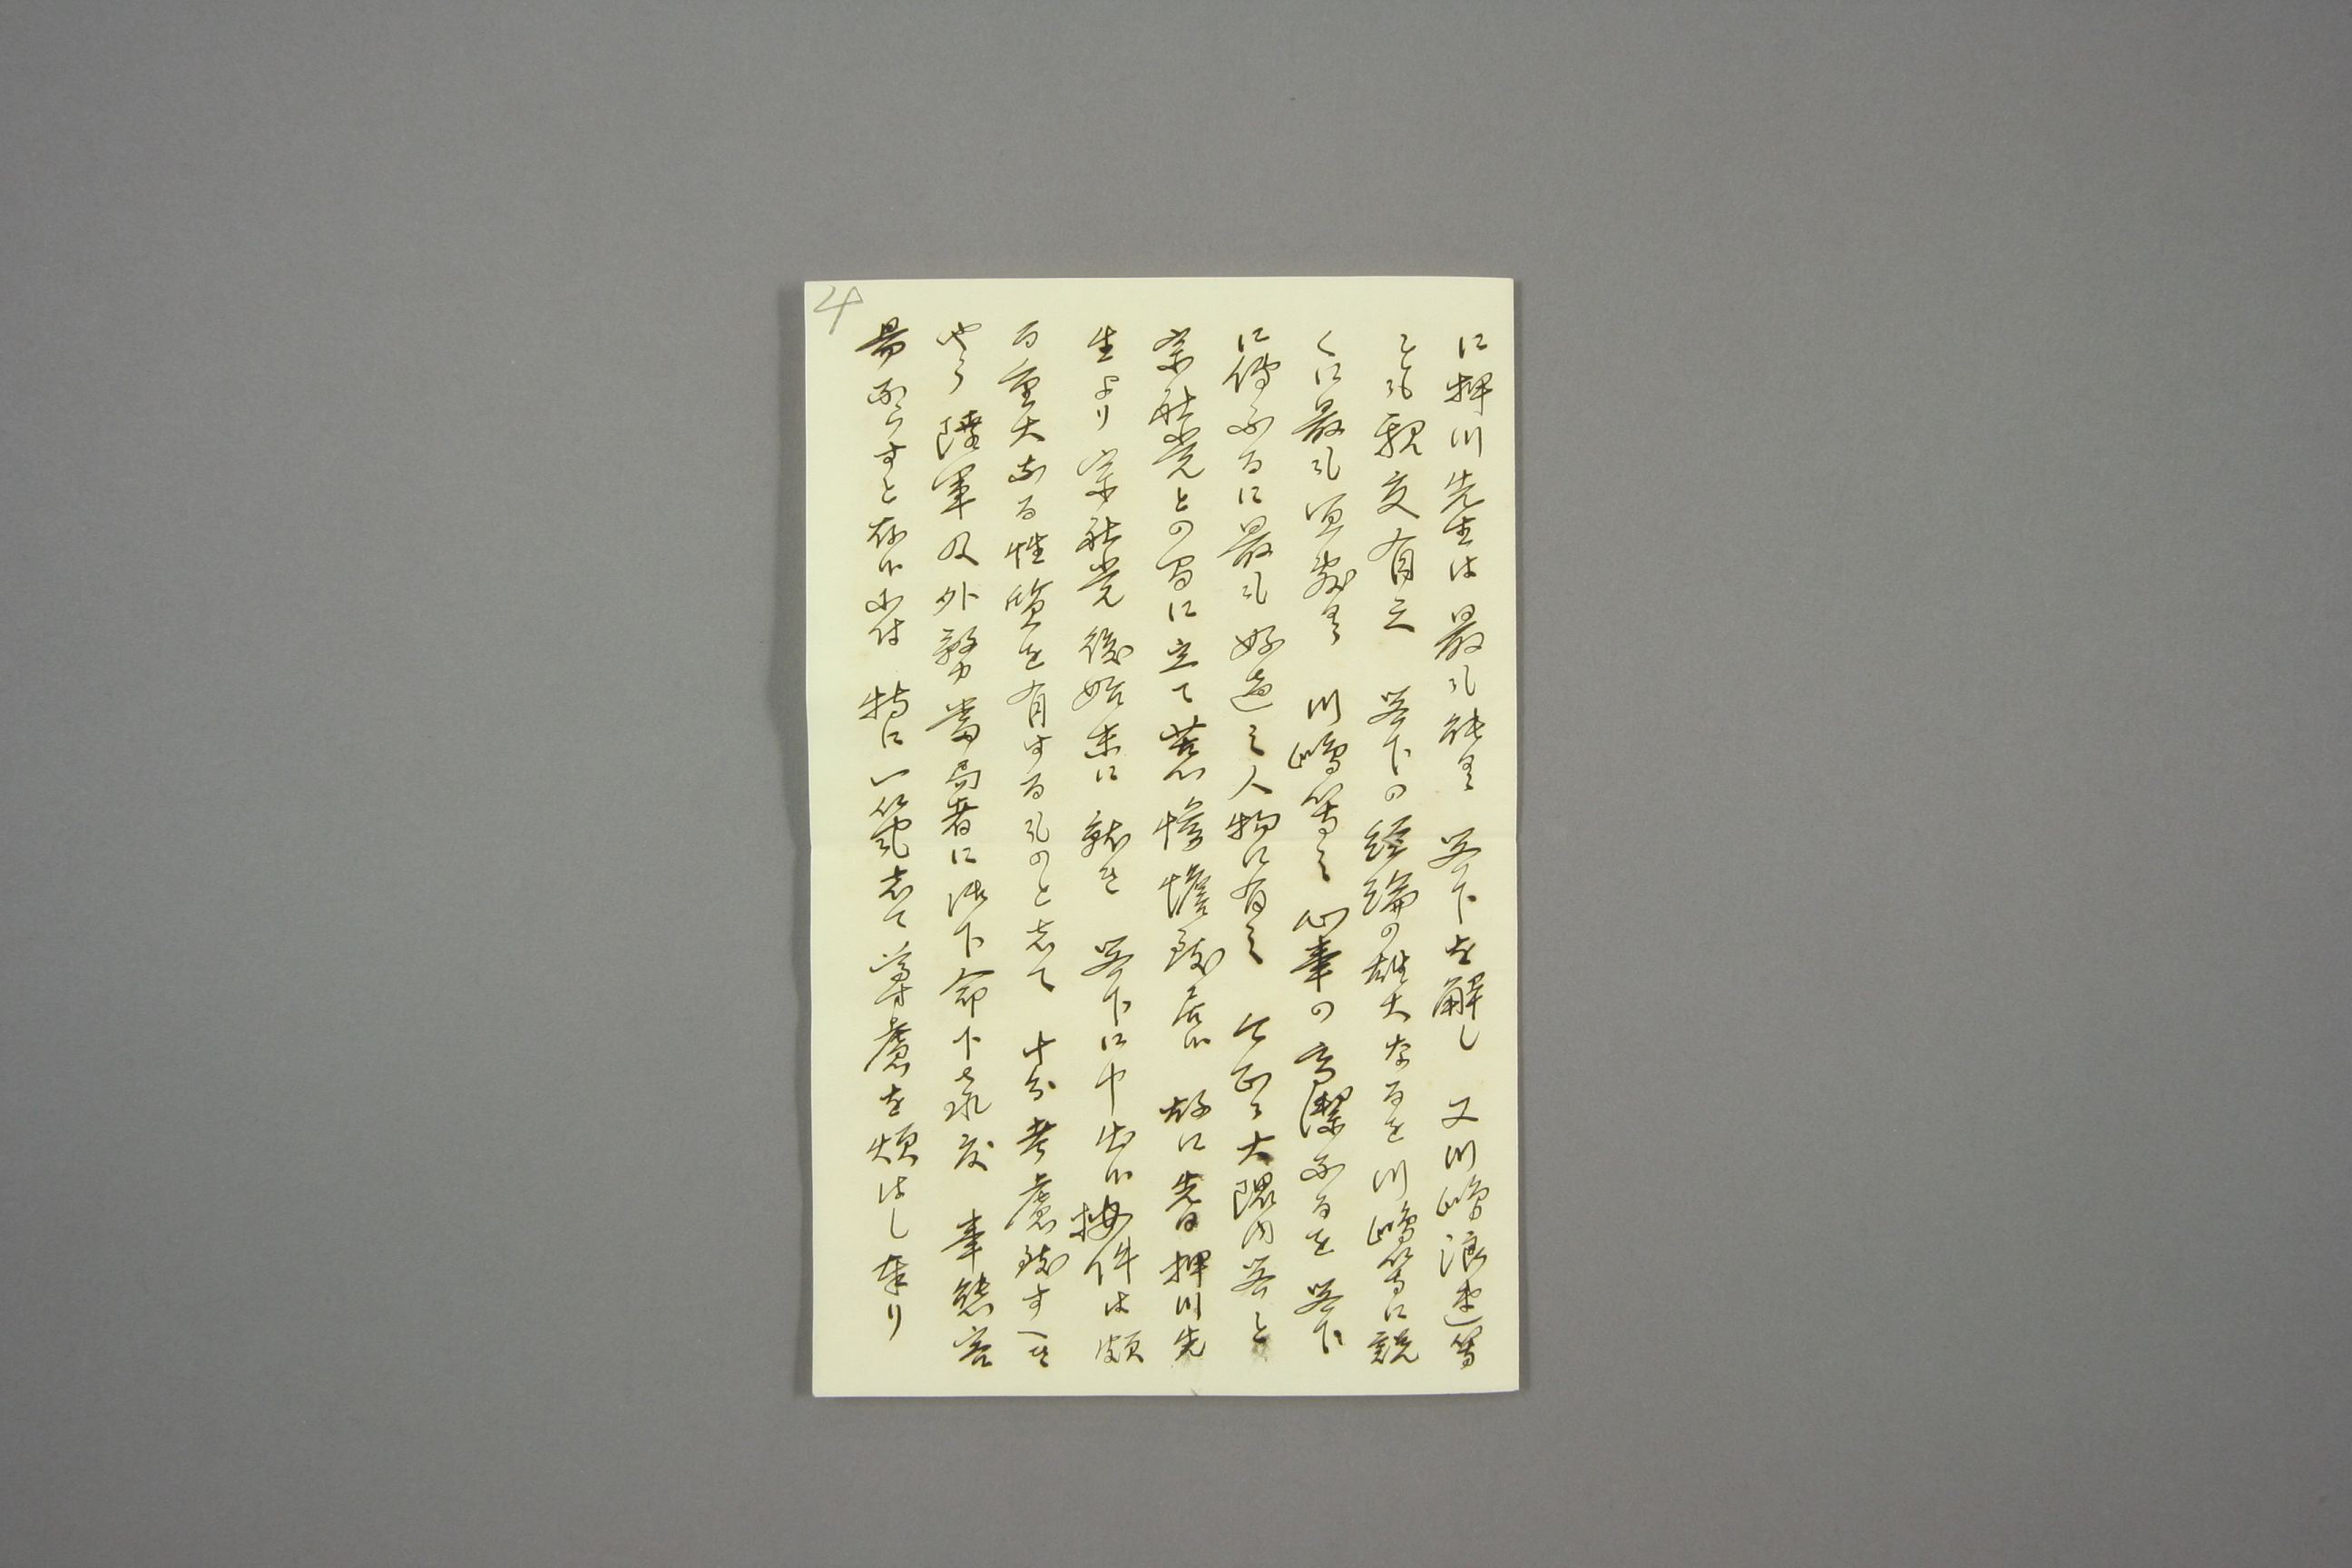 に押川先生は最も能く 閣下を解し 又川嶋浪速等
とも親交有之 閣下の経綸の雄大なるを川嶋等に説
くに最も適教く 川嶋等之心事の高潔なるを閣下
に伝ふるに最も好適之人物に有之 大隈内閣と
宗社党との間に立て苦心惨憺致居候 故に昔日押川先
生より宗社党後始末に就き 閣下に申出候按件は頗
る重大なる性質を有するものと志て 十分考慮致すへき
やう陸軍及外務当局者に御下命下され度 事態容
易ならすと存候小付 特に一筆志て尊慮を煩はし奉り
4